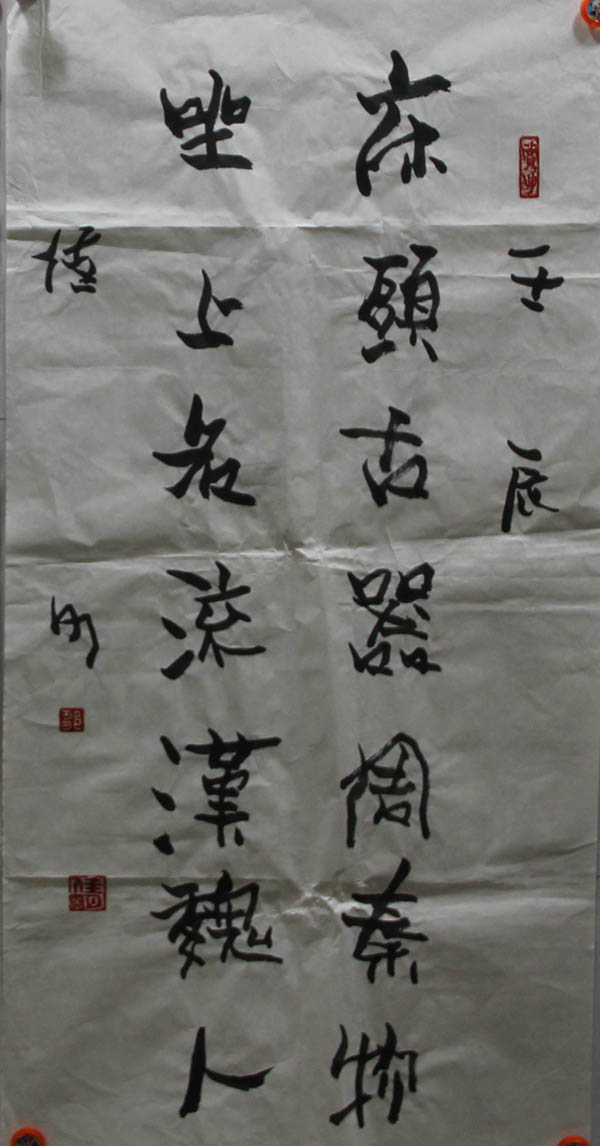 壬辰
床頭古器周秦物
坐上名流漢魏人